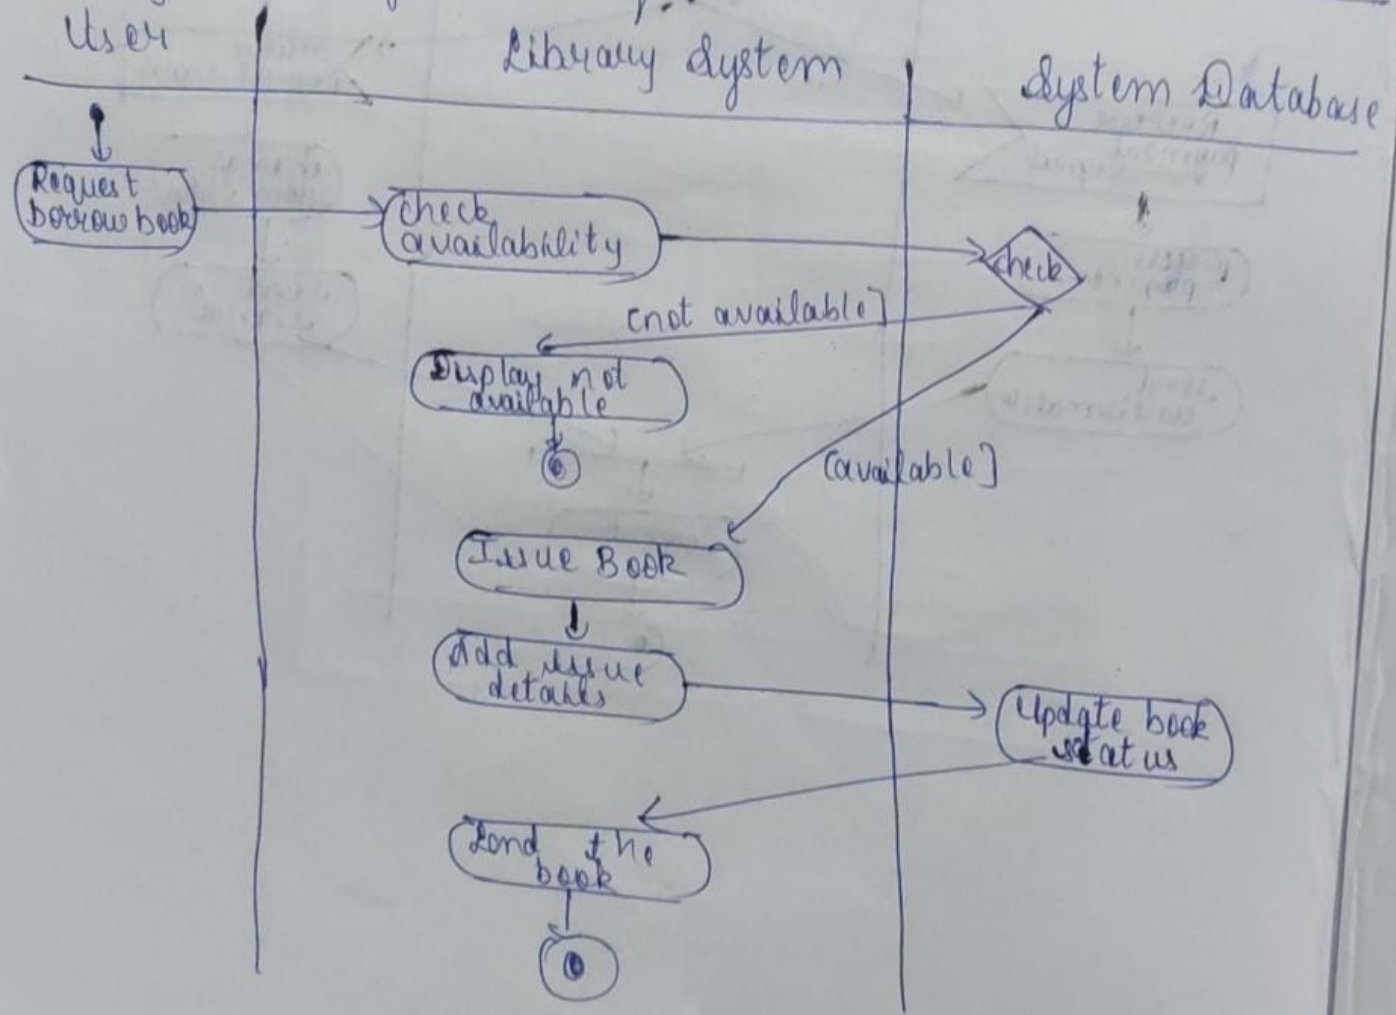 User
Library System
System Database
Request
borrow book
check
availability
check
[not available]
Display not
available
[available]
Issue Book
Add issue
details
Update book
status
Lend the
book